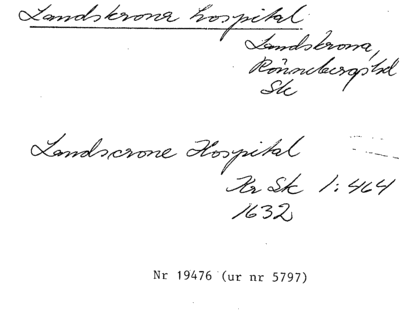 Landskrona hospital
Landskrona,
Rönnebergs hd
Sk
Landscrone Hospital
Kr Sk 1:464
1632
Nr 19476 (ur nr 5797)